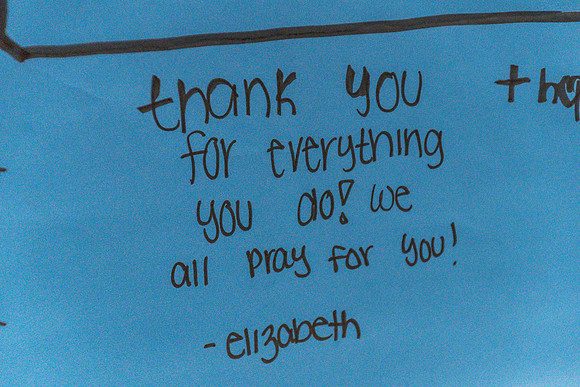 thank you
for everything
you do! we
all pray for you!
- elizabeth